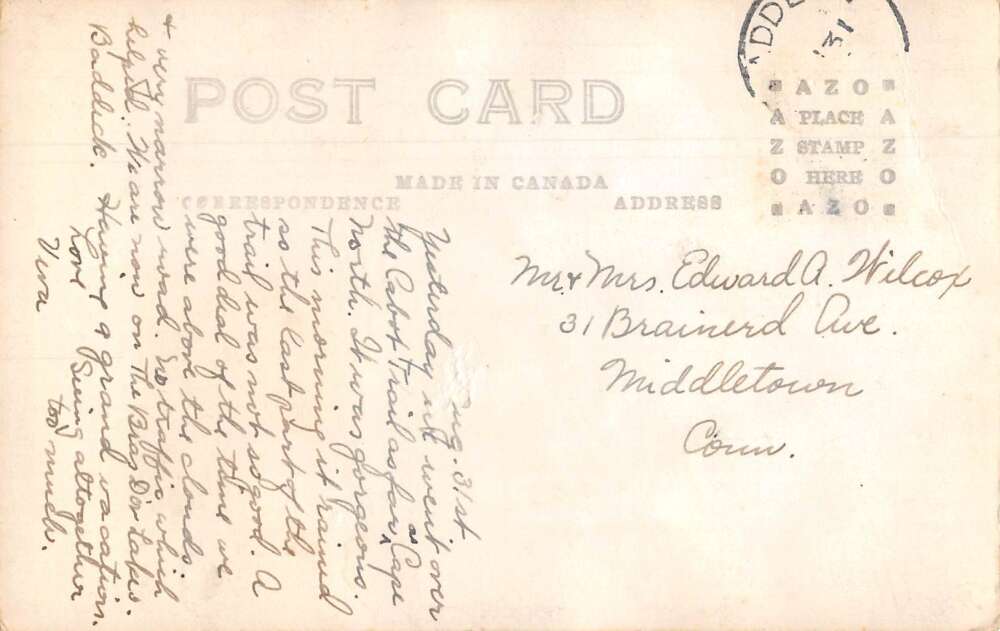 POST CARD
MADE IN CANADA
CORRESPONDENCE
ADDRESS
AZO
PLACE
STAMP
HERE
AZO
31
Aug. 31st
Yesterday we went over
the Cabot Trail as far as Cape
North. It was gorgeous.
This morning it rained
so the last part of the
trail was not so good. A
good deal of the time we
were above the clouds.
+ very narrow road. No traffic which
helped. We are now on The Bras D'or Lakes.
Baddeck. Having a grand vacation.
Seeing altogether
too much.
Love
Mr + Mrs. Edward A. Wilcox
31 Brainerd Ave.
Middletown
Conn.